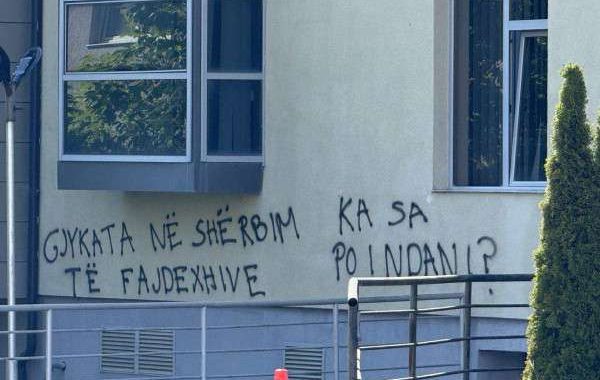 GJYKATA NË SHËRBIM
TË FAJDEXHIVE
KA SA
PO I NDANI?